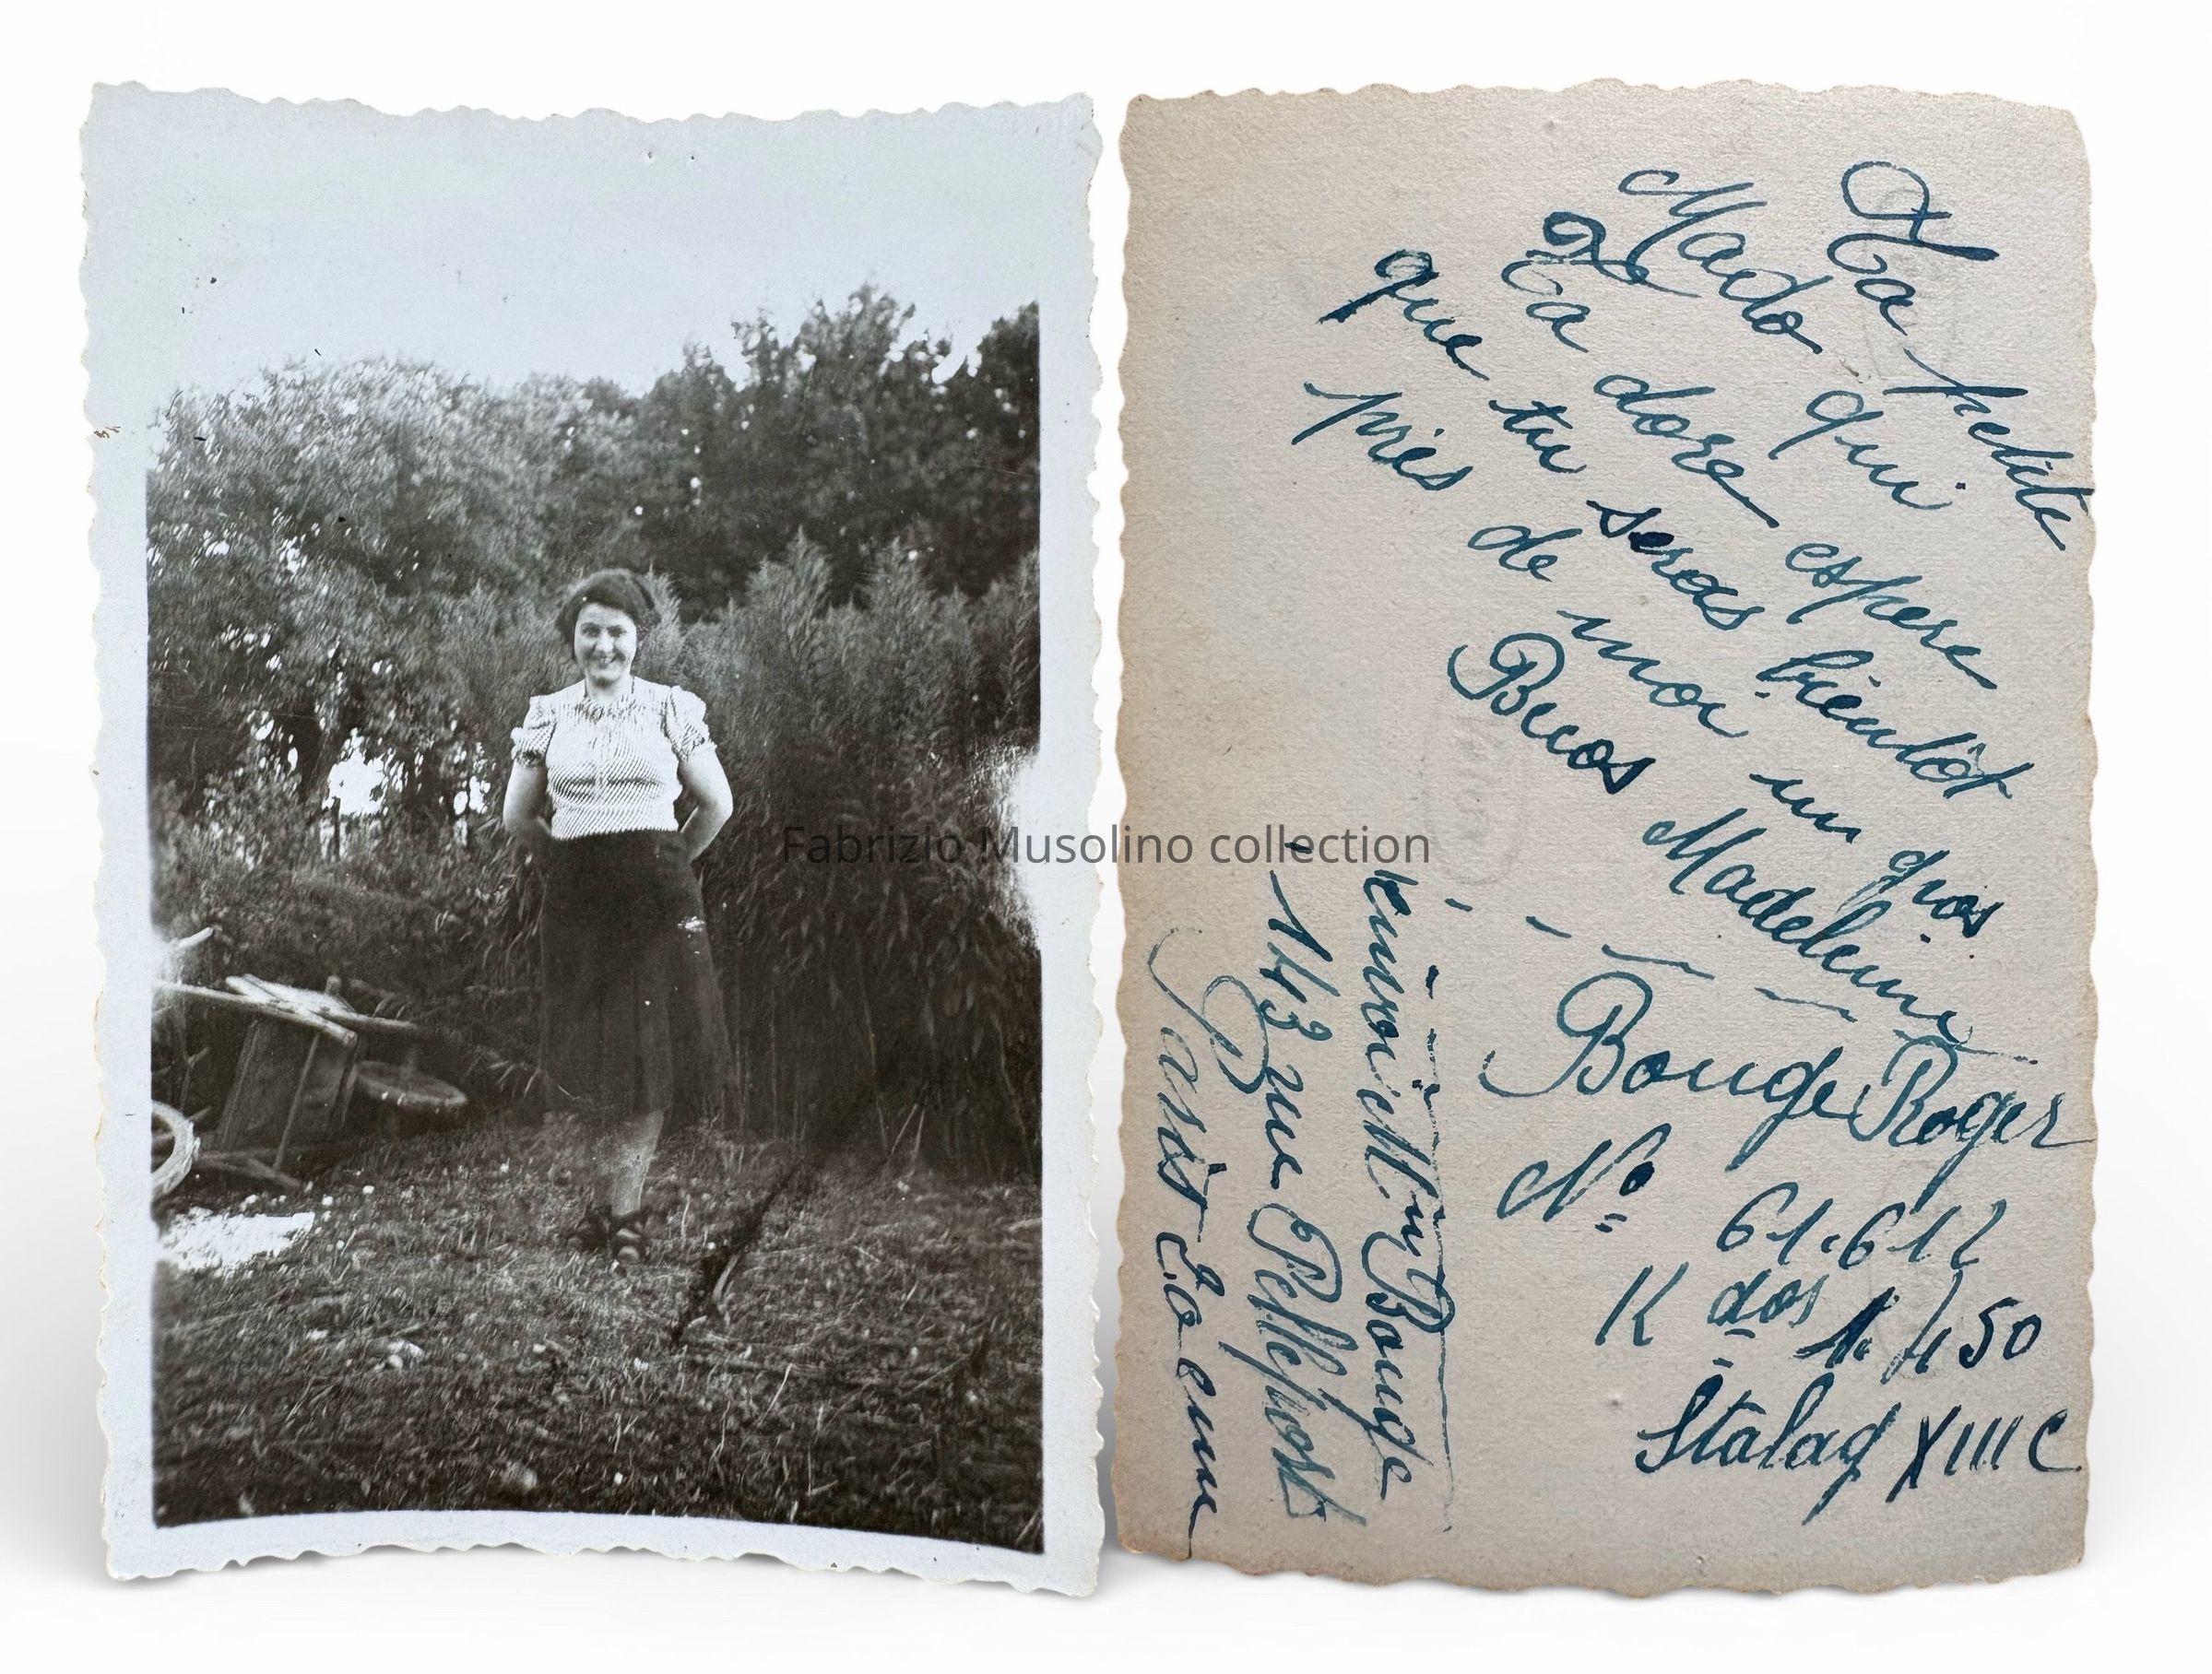 Ta petite
Mado qui
Ta dore espere
que tu seras bientôt
près de moi un gros
Bucos Madeleine
Bouge Roger
N° 61.612
K dos 1.450
Stalag XIII C
M Bouge
143 rue Pelleport
Paris 20 eme
Fabrizio Musolino collection